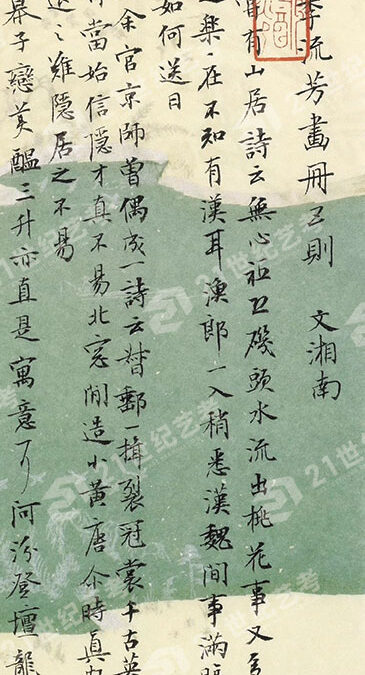 李流芳畫册五則 文湘南
有山居詩云無心 磯頭水流出桃花事又
樂在不知有漢耳漁郎一入稍悉漢魏間事滿
如何送日
余官京師曾偶成一詩云督郵一揖裂冠裳千古英
當始信隱才真不易北窓閒造小黃唐 時真
之難隱居之不易
皋子戀美醞三升亦直是寓意 河汾登壇龍
21世纪艺考